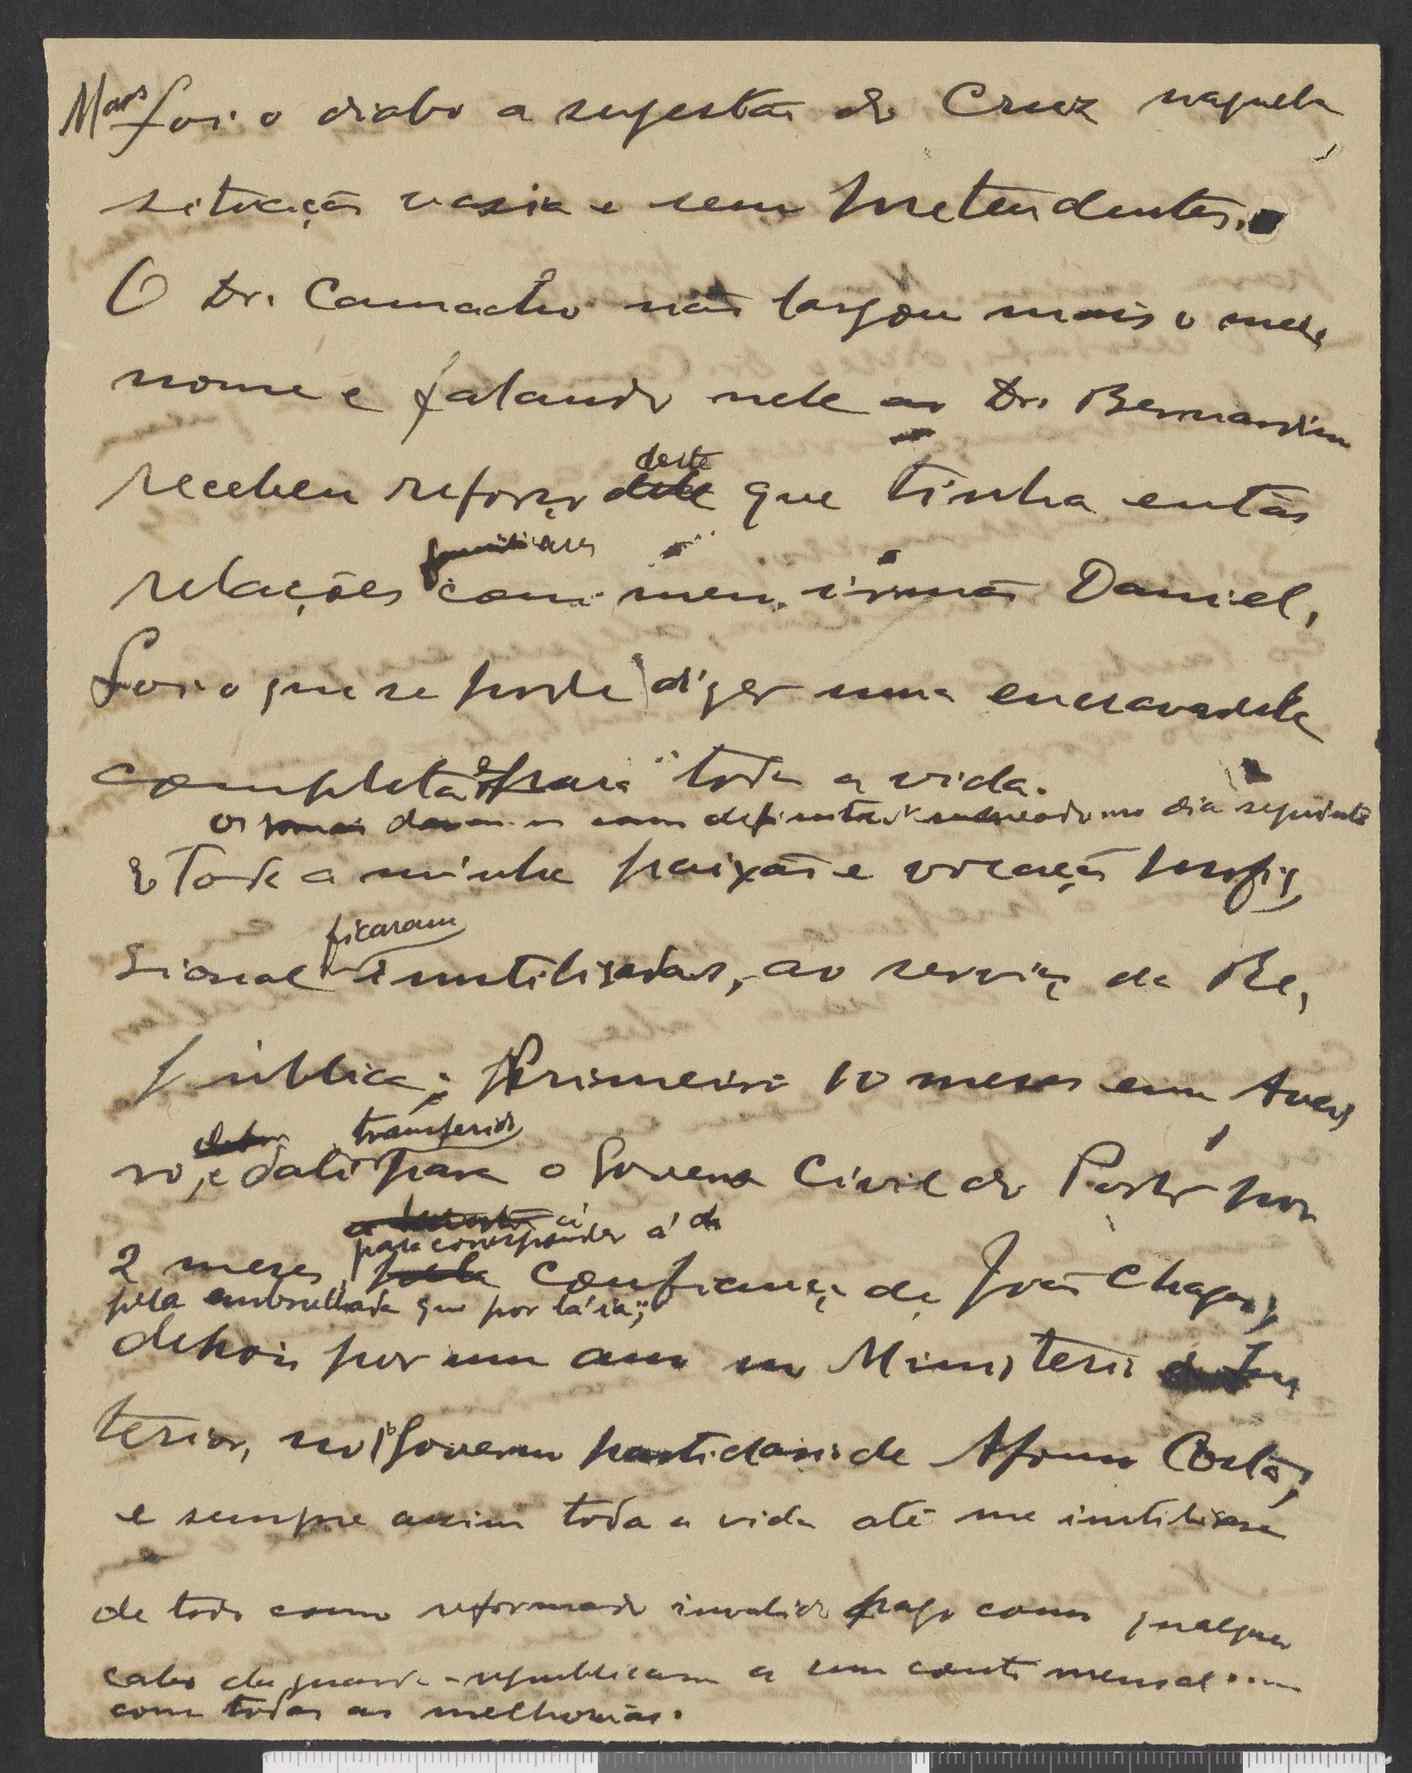 Mas foi o diabo a sugestão do Cruz naquela
situação vasia e sem pretendentes.
O Dr. Camacho não largou mais o meu
nome e falando nele ao Dr. Bernardino
recebeu reforço deste que tinha então
relações familiares com meu irmão Daniel,
Foi o que se pode diser uma encravadela
completa e para toda a vida.
Os jornais davam-me como definitivo nomeado no dia seguinte
E Toda a minha paixão e vocação profis
sional ficaram inutilisadas, ao serviço da Re,
pública; Primeiro 10 meses em Avei
ro, e dali transferido para o Governo Civil do Porto por
2 meses, para corresponder á da confiança de João Chagas,
pela embrulhada que por lá ia;
depois por um ano no Ministerio do In
terior, no Governo partidario de Afonso Costa,
e sempre assim toda a vida até me inutilisar
de todo como reformado invalido pago como qualquer
cabo da guarda-republicana a um conto mensal....
com todas as melhorias.